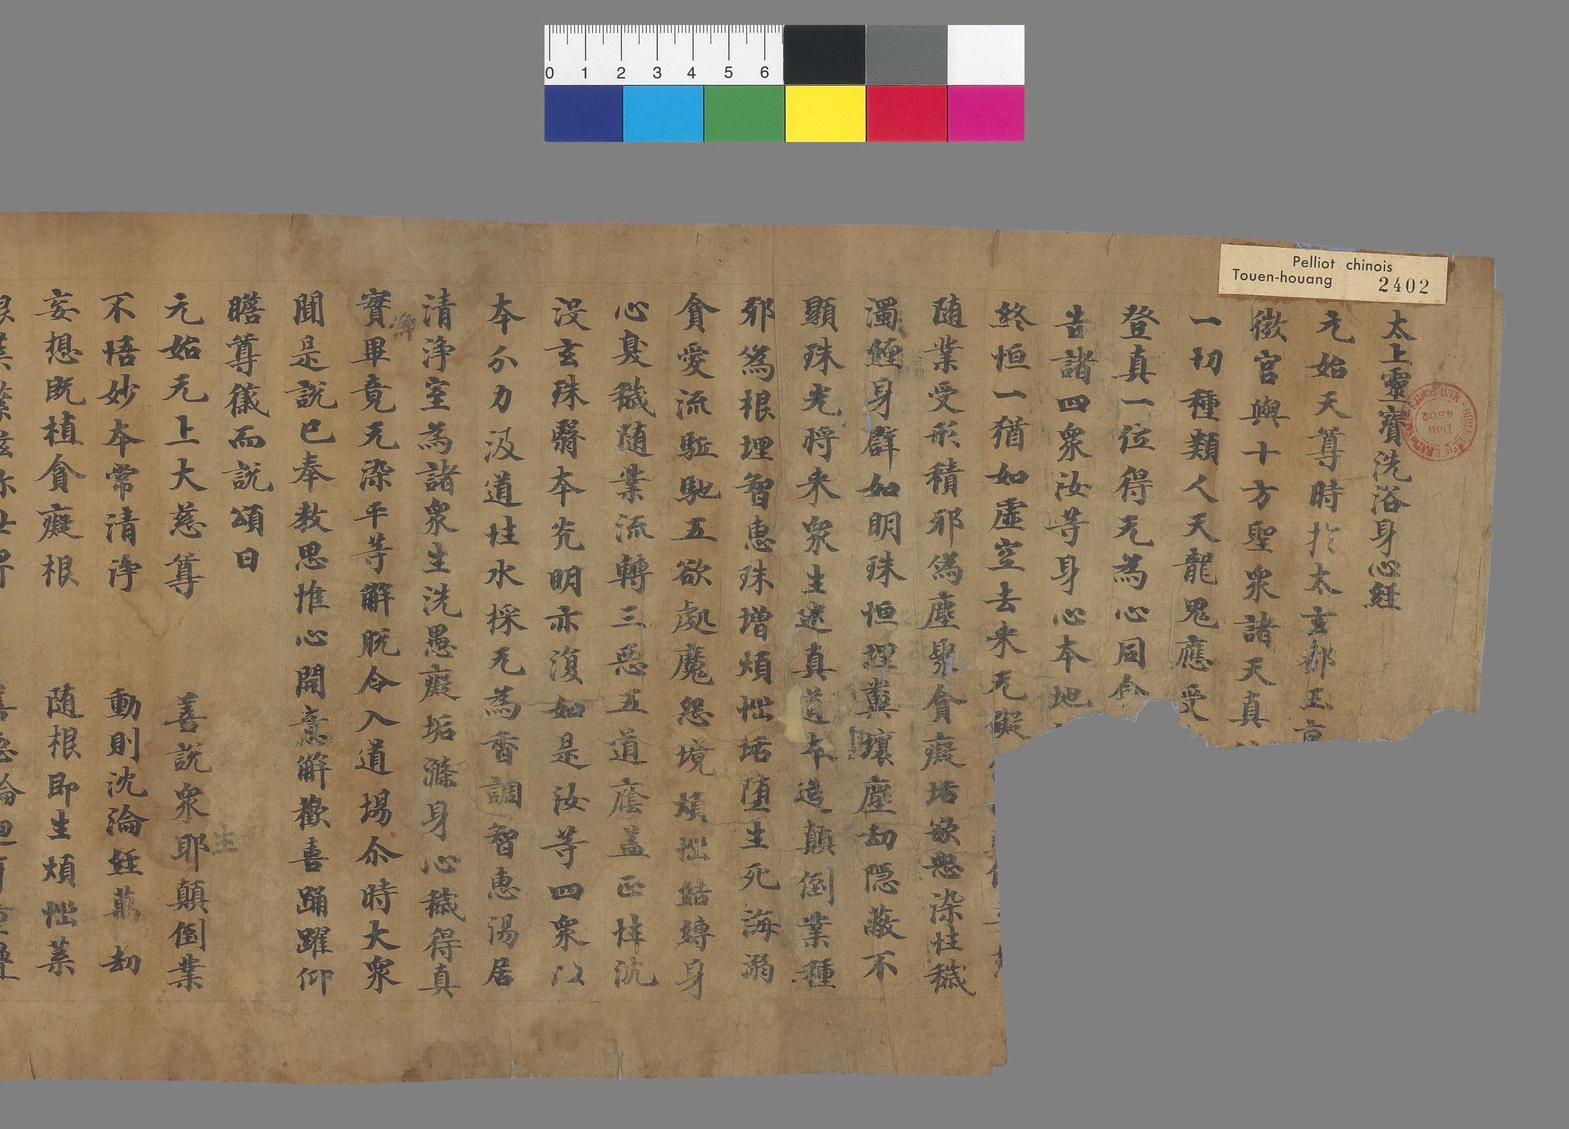 Pelliot chinois
Touen-houang 2402
0 1 2 3 4 5 6
太上靈寶洗浴身心經
元始天尊時於太玄都玉京
微官與十方聖衆諸天真
一切種類人天龍鬼應受
登真一位得无為心同
告諸四衆汝等身心本地
終恒一猶如虛空去来无礙
随業受形積邪為塵聚貪癡垢欲愍染性穢
濁經身群如明珠恒埋糞壤塵劫隠蔽不
顯珠光将来衆生迷真道本造顛倒業種
邪為根埋智惠珠增煩惱垢堕生死海溺
貪愛流驅馳五欲處魔怨境煩惱結縛身
心臭穢随業流轉三惡五道廕盖正悼沉
没玄珠翳本光明亦復如是汝等四衆以
本分力汲道性水採无為香調智惠湯居
清浄室為諸衆生洗愚癡垢滌身心穢得真
實畢竟无染平等解脱令入道場尒時大衆
聞是説已奉教思惟心開意解歡喜踊躍仰
瞻尊儀而説頌曰
元始无上大慈尊 善説衆耶顛倒業
不悟妙本常清浄 動則沈淪經萬劫
妄想既植貪癡根 随根即生煩惱葉